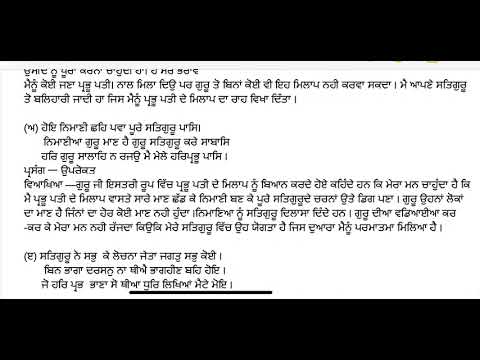 ਉਮੀਦ ਨੂੰ ਪੂਰਾ ਕਰਨਾ ਚਾਹੁੰਦੀ ਹਾਂ। ਹੇ ਸੰਤ ਭਰਾਵੋ
ਮੈਨੂੰ ਕੋਈ ਜਣਾ ਪ੍ਰਭੂ ਪਤੀ। ਨਾਲ ਮਿਲਾ ਦਿਉ ਪਰ ਗੁਰੂ ਤੋ ਬਿਨਾਂ ਕੋਈ ਵੀ ਇਹ ਮਿਲਾਪ ਨਹੀ ਕਰਵਾ ਸਕਦਾ। ਮੈ ਆਪਣੇ ਸਤਿਗੁਰੂ
ਤੋ ਬਲਿਹਾਰੀ ਜਾਦੀ ਹਾ ਜਿਸ ਮੈਨੂੰ ਪ੍ਰਭੂ ਪਤੀ ਦੇ ਮਿਲਾਪ ਦਾ ਰਾਹ ਵਿਖਾ ਦਿੱਤਾ।
(ਅ) ਹੋਇ ਨਿਮਾਣੀ ਢਹਿ ਪਵਾ ਪੂਰੇ ਸਤਿਗੁਰੂ ਪਾਸਿ।
ਨਿਮਾਣੀਆ ਗੁਰੂ ਮਾਣ ਹੈ ਗੁਰੂ ਸਤਿਗੁਰੂ ਕਰੇ ਸਾਬਾਸਿ
ਹਰਿ ਗੁਰੂ ਸਾਲਾਹਿ ਨ ਰਜਉ ਮੈ ਮੇਲੇ ਹਰਿਪ੍ਰਭੂ ਪਾਸਿ।
ਪ੍ਰਸੰਗ — ਉਪਰੋਕਤ
ਵਿਆਖਿਆ —ਗੁਰੂ ਜੀ ਇਸਤਰੀ ਰੂਪ ਵਿੱਚ ਪ੍ਰਭੂ ਪਤੀ ਦੇ ਮਿਲਾਪ ਨੂੰ ਬਿਆਨ ਕਰਦੇ ਹੋਏ ਕਹਿੰਦੇ ਹਨ ਕਿ ਮੇਰਾ ਮਨ ਚਾਹੁੰਦਾ ਹੈ ਕਿ
ਮੈ ਪ੍ਰਭੂ ਪਤੀ ਦੇ ਮਿਲਾਪ ਵਾਸਤੇ ਸਾਰੇ ਮਾਣ ਛੱਡ ਕੇ ਨਿਮਾਣੀ ਬਣ ਕੇ ਪੂਰੇ ਸਤਿਗੁਰੂਦੇ ਚਰਨਾਂ ਉਤੇ ਡਿਗ ਪਣਾ। ਗੁਰੂ ਉਹਨਾਂ ਲੋਕਾਂ
ਦਾ ਮਾਣ ਹੈ ਜਿੰਨਾਂ ਦਾ ਹੋਰ ਕੋਈ ਮਾਣ ਨਹੀ ਹੁੰਦਾ।ਨਿਮਾਣਿਆ ਨੂੰ ਸਤਿਗੁਰੂ ਦਿਲਾਸਾ ਦਿੰਦੇ ਹਨ। ਗੁਰੂ ਦੀਆ ਵਡਿਆਈਆ ਕਰ
-ਕਰ ਕੇ ਮੇਰਾ ਮਨ ਨਹੀ ਰੱਜਦਾ ਕਿਉਕਿ ਮੇਰੇ ਸਤਿਗੁਰੂ ਵਿੱਚ ਉਹ ਯੋਗਤਾ ਹੈ ਜਿਸ ਦੁਆਰਾ ਮੈਨੂੰ ਪਰਮਾਤਮਾ ਮਿਲਿਆ ਹੈ।
(ੲ) ਸਤਿਗੁਰੂ ਨੋ ਸਭੁ ਕੇ ਲੋਚਨਾ ਜੇਤਾ ਜਗਤੁ ਸਭੁ ਕੋਈ।
ਬਿਨ ਭਾਗਾ ਦਰਸਨੁ ਨਾ ਥੀਐ ਭਾਗਹੀਣ ਬਹਿ ਹੋਇ।
ਜੋ ਹਰਿ ਪ੍ਰਭ ਭਾਣਾ ਸੋ ਥੀਆ ਧੁਰਿ ਲਿਖਿਆਂ ਮੈਟੇ ਮੋਇ।